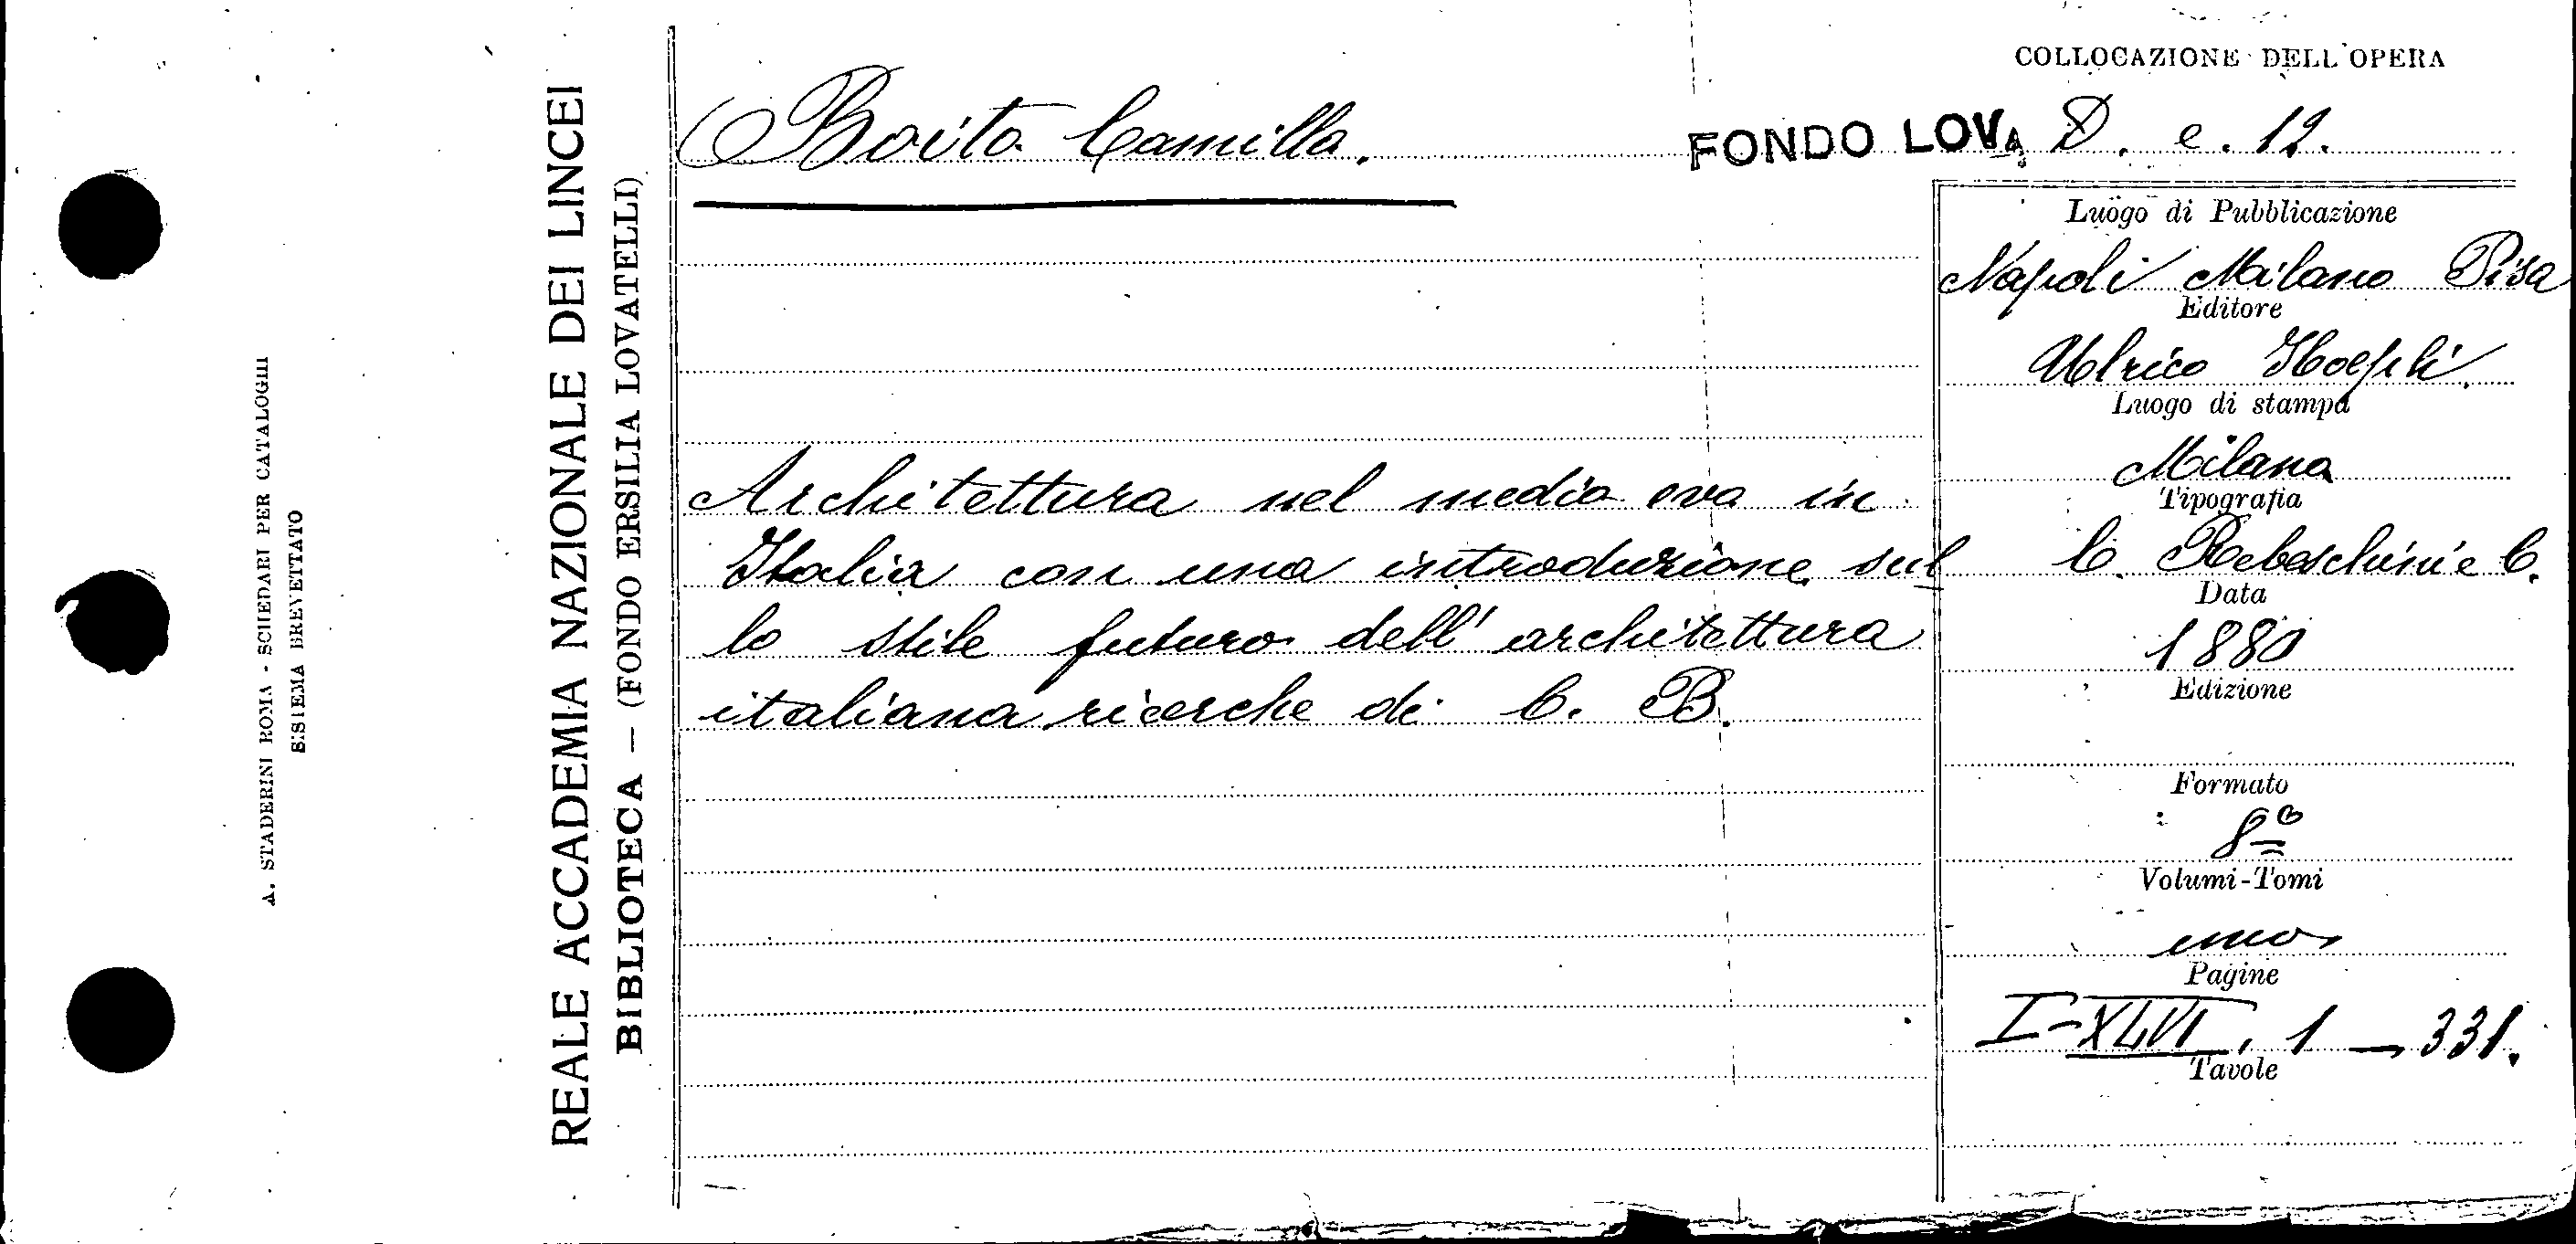 A. STADERINI ROMA - SCHEDARI PER CATALOGHI
SISTEMA BREVETTATO
REALE ACCADEMIA NAZIONALE DEI LINCEI
BIBLIOTECA — (FONDO ERSILIA LOVATELLI)
Boito Camillo.
COLLOCAZIONE DELL'OPERA
FONDO LOVA D. e. 12.
Architettura nel medio evo in
Italia con una introduzione sul
lo stile futuro dell'architettura
italiana ricerche di C. B.
Luogo di Pubblicazione
Napoli Milano Pisa
Editore
Ulrico Hoepli.
Luogo di stampa
Milano
Tipografia
C. Rebeschini e C.
Data
1880
Edizione
Formato
8º
Volumi-Tomi
uno
Pagine
I-XLVI, 1 — 331.
Tavole